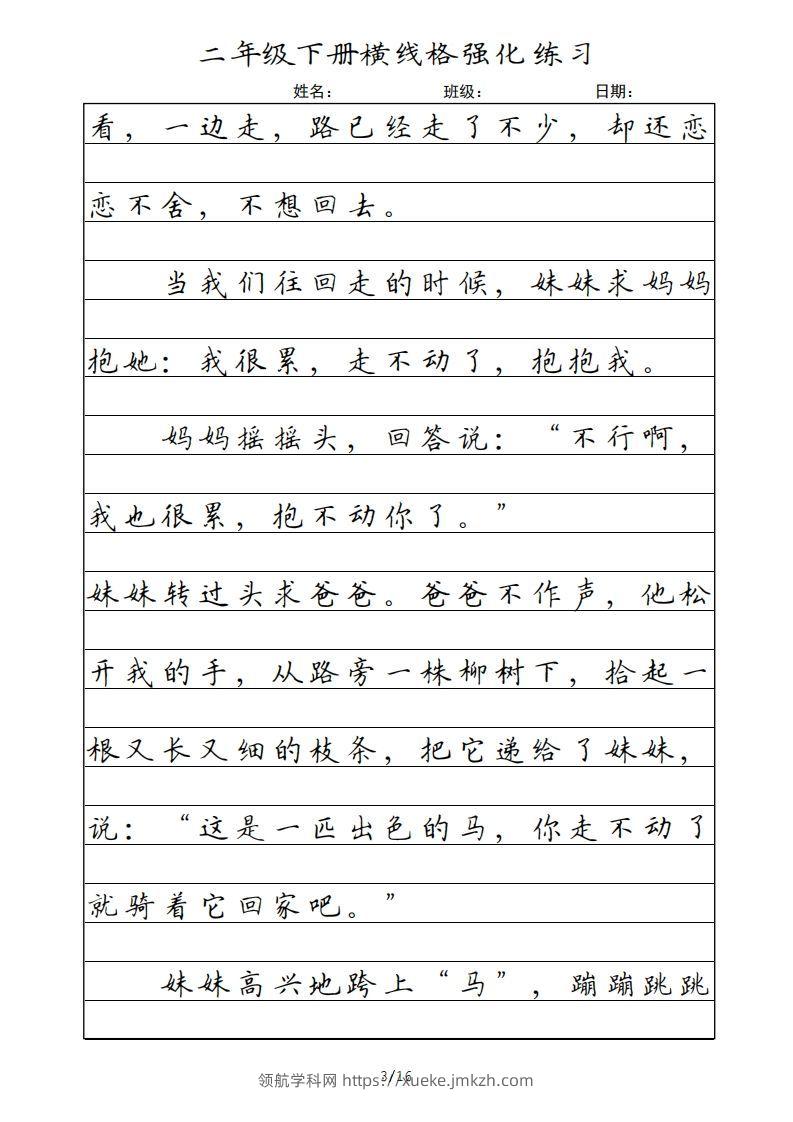 二年级下册横线格强化练习
姓名： 班级： 日期：
看，一边走，路已经走了不少，却还恋
恋不舍，不想回去。
当我们往回走的时候，妹妹求妈妈
抱她：我很累，走不动了，抱抱我。
妈妈摇摇头，回答说：“不行啊，
我也很累，抱不动你了。”
妹妹转过头求爸爸。爸爸不作声，他松
开我的手，从路旁一株柳树下，拾起一
根又长又细的枝条，把它递给了妹妹，
说：“这是一匹出色的马，你走不动了
就骑着它回家吧。”
妹妹高兴地跨上“马”，蹦蹦跳跳
3/16
领航学科网 https://xueke.jmkzh.com